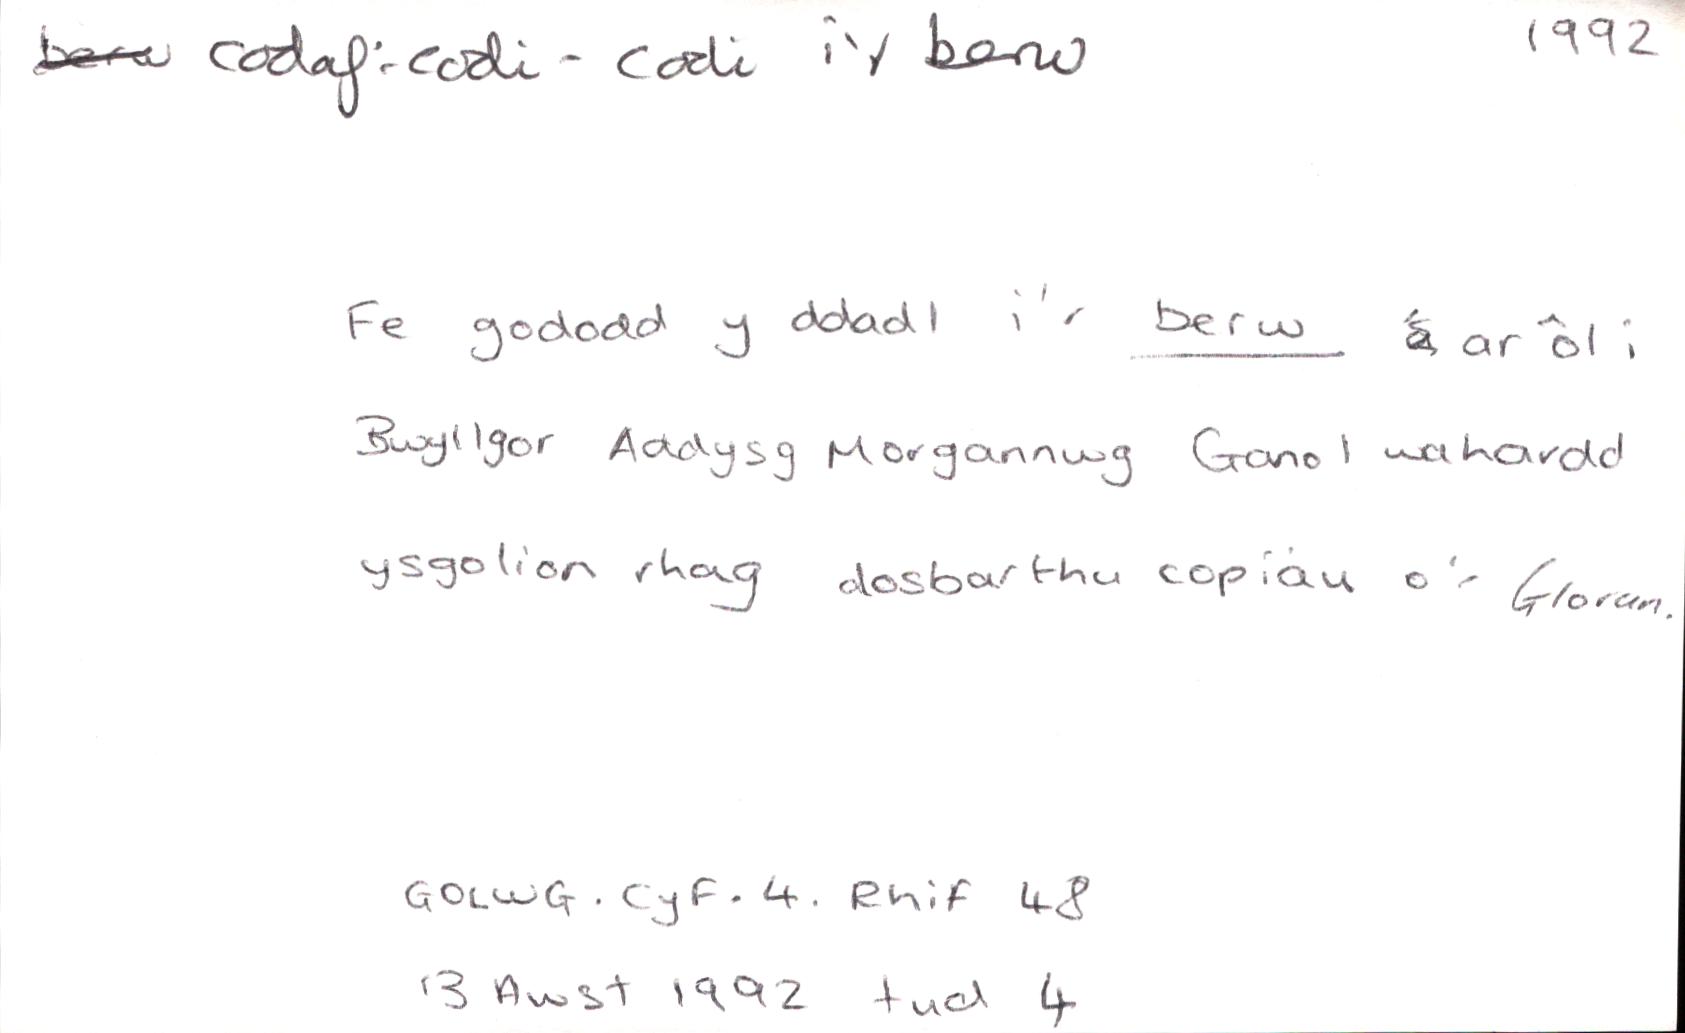 codaf: codi - codi i'r berw 1992
Fe gododd y ddadl i'r berw ar ôl i
Bwyllgor Addysg Morgannwg Ganol wahardd
ysgolion rhag dosbarthu copïau o'r Gloran.
GOLWG. Cyf. 4. Rhif 48
13 Awst 1992 tud 4